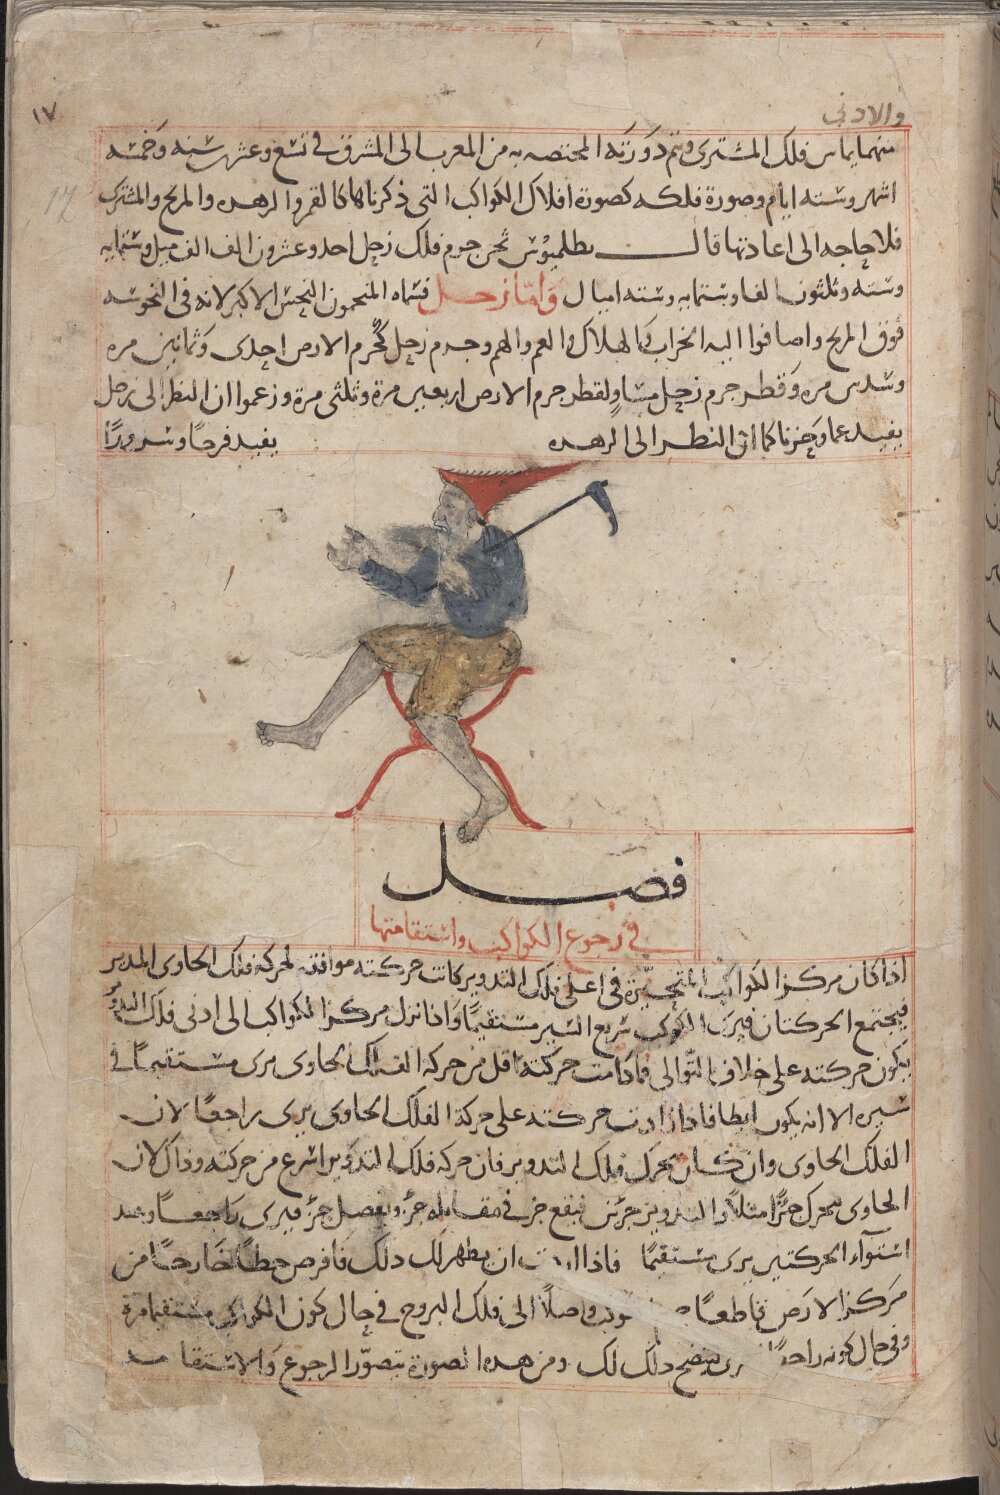 ١٧
والادنى
منهما يماس فلك المشترى ويتم دورته المختصه به من المغرب الى المشرق فى تسع وعشرين سنه وخمسه
اشهر وسته ايام وصورة فلكه كصورة افلاك الكواكب التى ذكرناها كالقمر والزهره والمريخ والمشترى
فلا حاجه الى اعادتها قال بطلميوس ثخن جرم فلك زحل احد وعشرون الف الف ميل وستمايه
وسته وثلثون الفا وستمايه وسته اميال واما زحل فسماه المنجمون النحس الاكبر لانه فى النحوسه
فوق المريخ واضافوا اليه الخراب والهلاك والغم والهم وجرم زحل كجرم الارض احدى وثمانين مره
وسدس مره وقطر جرم زحل مساو لقطر جرم الارض اربعين مرة وثلثى مرة وزعموا ان النظر الى زحل
يفيد غما وحزنا كما ان النظر الى الزهره يفيد فرحا وسرورا
فصل
فى رجوع الكواكب واستقامتها
اذا كان مركز الكواكب المتحيرة فى اعلى فلك التدوير كانت حركته موافقه لحركه فلك الحاوى المدير
فيجتمع الحركتان فيرى الكوكب سريع السير مستقيما واذا نزل مركز الكواكب الى ادنى فلك التدوير
يكون حركته على خلاف التوالى فما دامت حركته اقل من حركه الفلك الحاوى يرى مستقيما فى
سيره الا انه يكون ابطا فاذا زادت حركته على حركة الفلك الحاوى يرى راجعا لان
الفلك الحاوى وان كان يحرك فلك التدوير فان حركه فلك التدوير اسرع من حركته وذاك لان
الحاوى يتحرك جزا مثلا والتدوير جزئين فيقع جز فى مقابله جز ويفضل جز فيرى راجعا وعند
استواء الحركتين يرى مستقيما فاذا اردت ان يظهر لك ذلك فافرض خطا خارجا من
مركز الارض قاطعا واصلا الى فلك البروج فى حال كون الكواكب مستقيما مرة
وفى حال كونه راجعا يتضح ذلك لك ومن هذه الصورة يتصور الرجوع والاستقامه